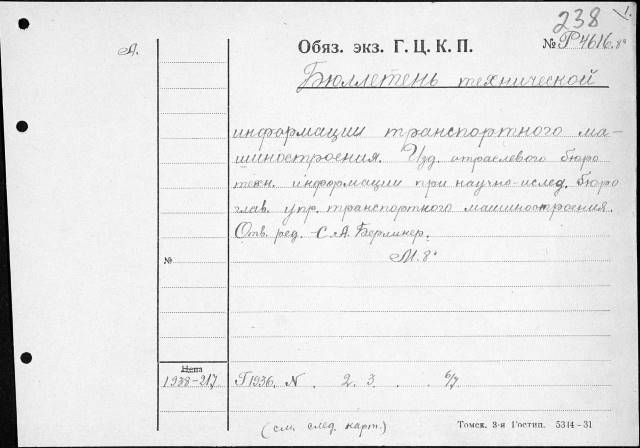 238
1.
А.
Обяз. экз. Г. Ц. К. П.
№ Р 4616. 8°
Бюллетень технической
информации транспортного ма-
шиностроения. Изд. отраслевого бюро
техн. информации при научно-исслед. бюро
глав. упр. транспортного машиностроения.
Отв. ред. С. А. Берлинер.
№
М. 8°
Цена
1938-217
Г 1936. N . 2. 3. . . 6/7
(см. след. карт.)
Томск. 3-я Гостип. 5314—31